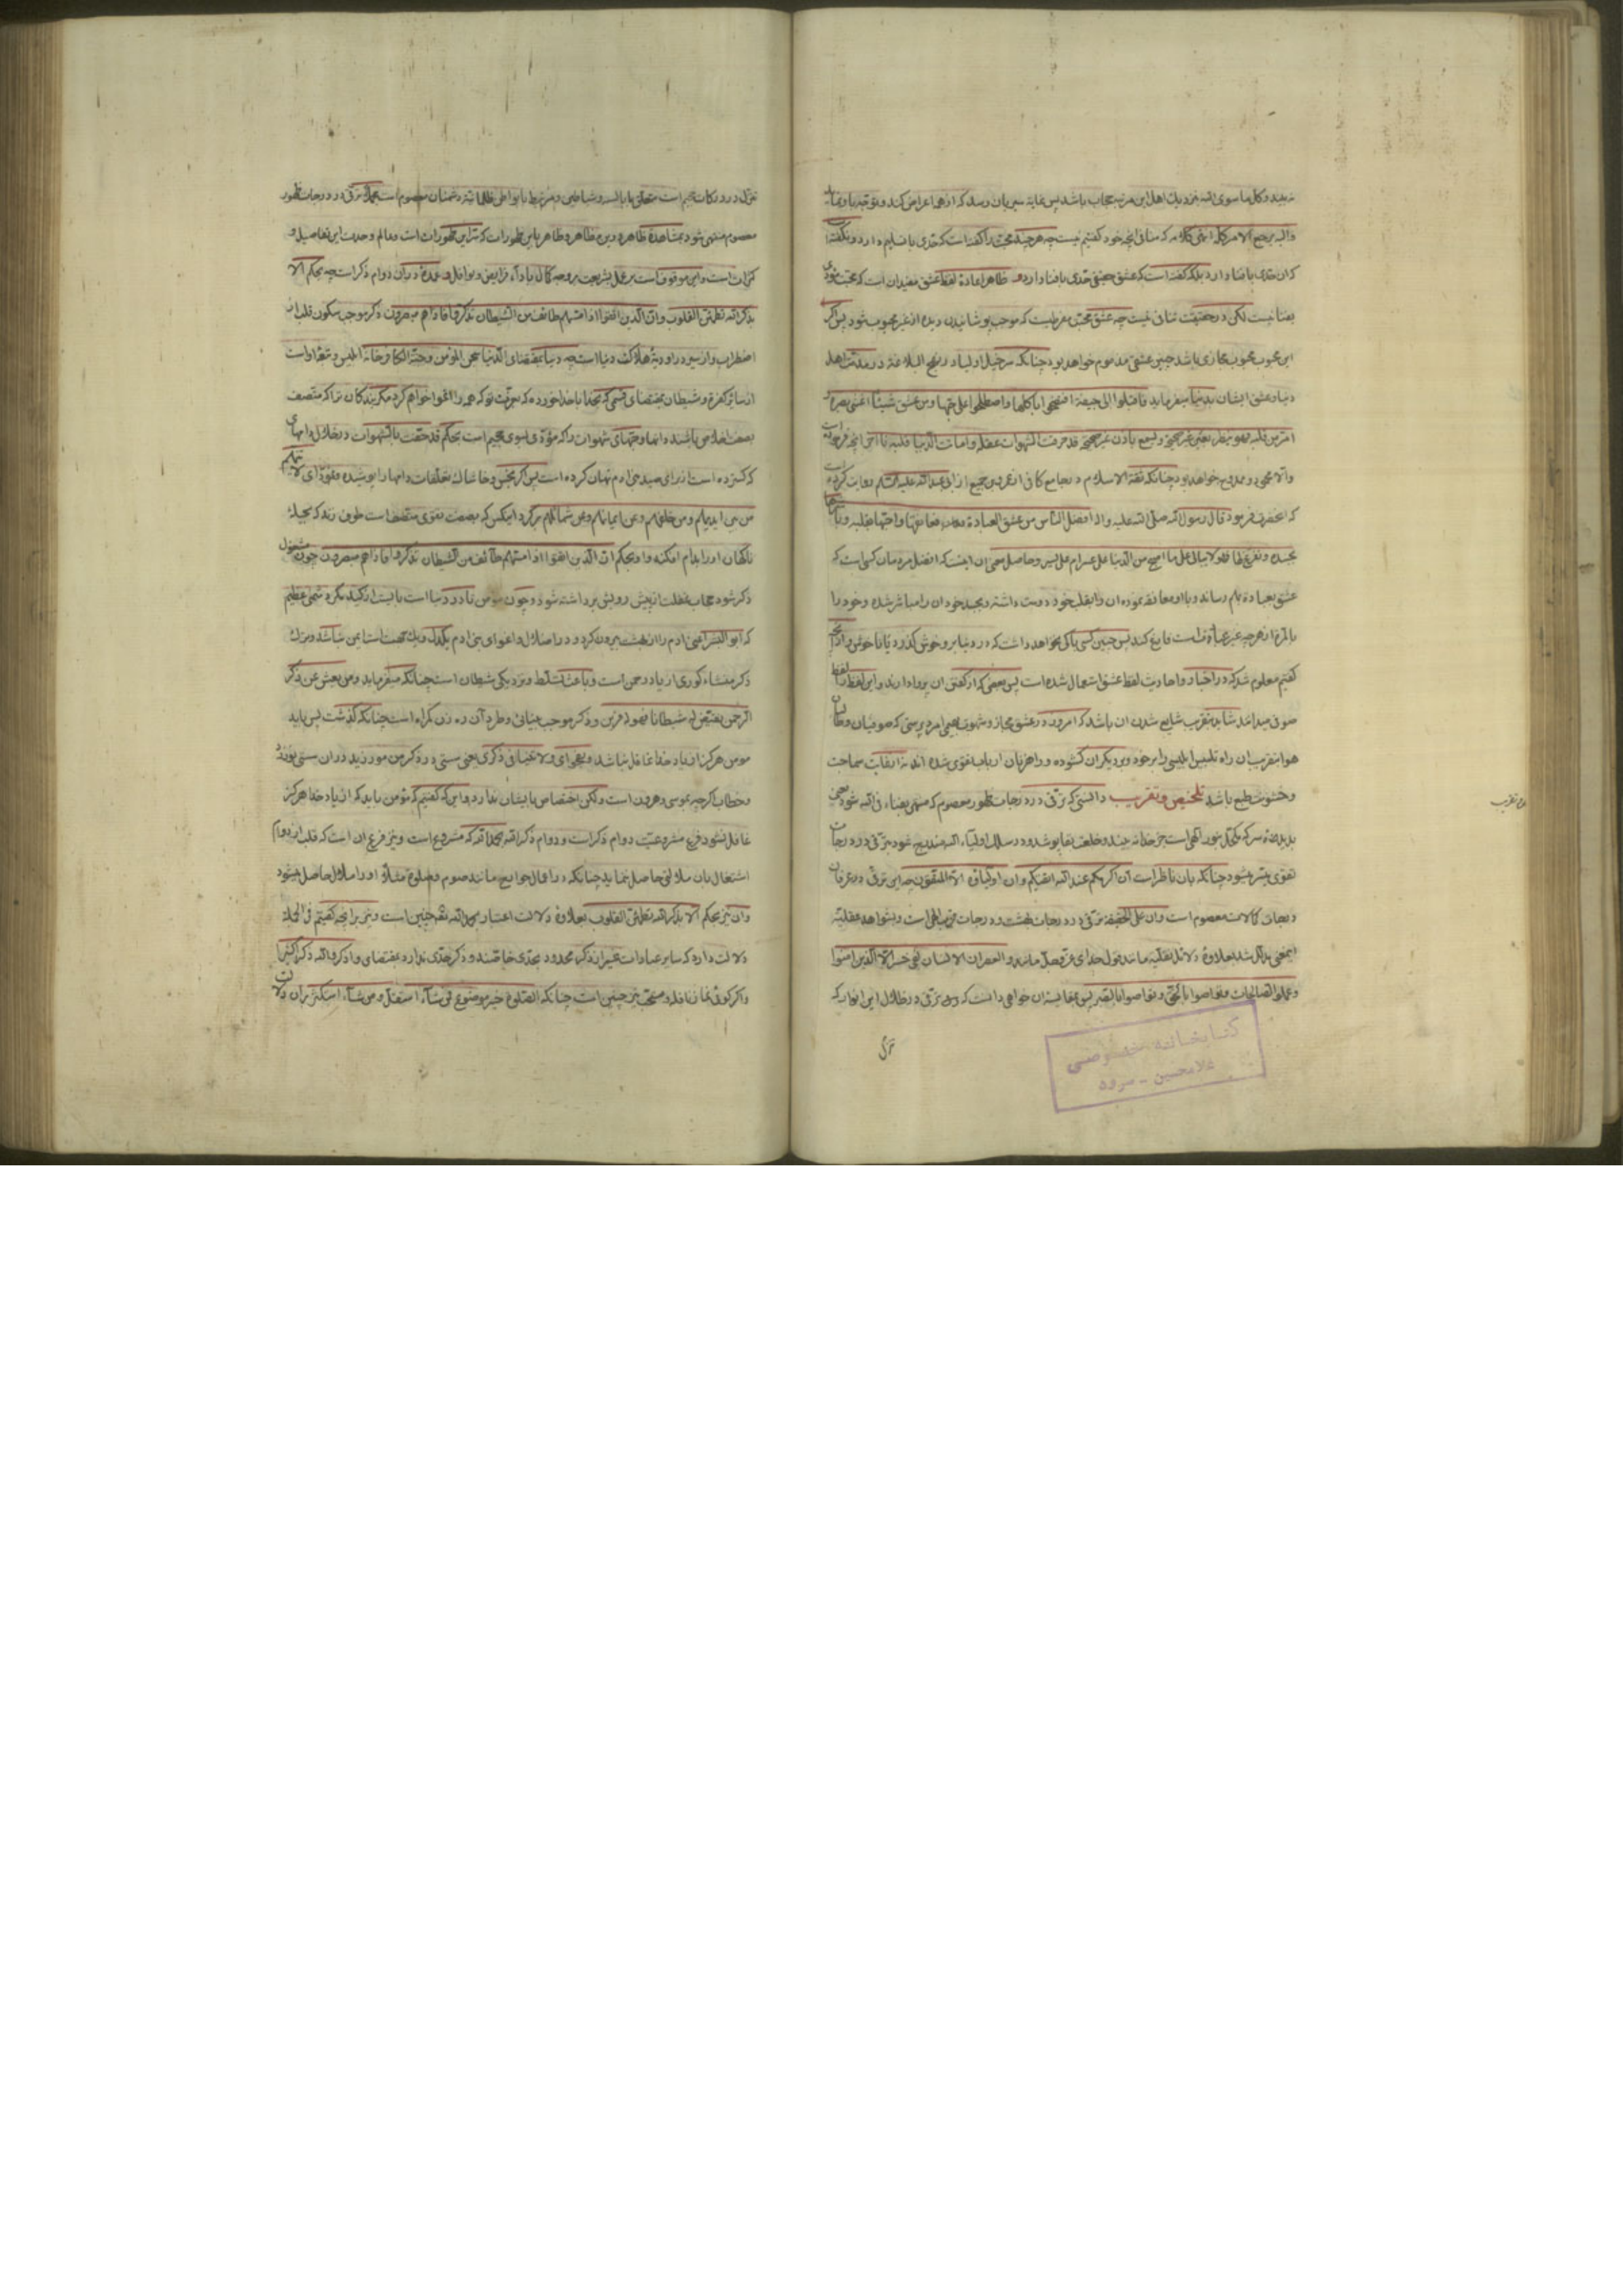 نه بیند و کل ما سوی الله نزدیک اهل این مرتبه حجاب باشد پس غایة سیر بان رسد که از همه اعراض کند و توجه باو نماید
والیه یرجع الامر کله این کلام که منافی انچه خود گفتیم نیست چه هر چند محبت را گفته است که حدی با فنا دارد و نگفته
که ان حدی با فنا دارد بلکه گفته است که عشق حقیقی حدی با فنا دارد و ظاهر اعادهٔ لفظ عشق مفید ان است که محبت
بفنا نیست لکن در حقیقت تنافی نیست چه عشق محبتی مفرطیست که موجب پوشانیدن دیدهٔ از غیر محبوب شود پس اگر
این محبوب محبوب مجازی باشد چنین عشقی مذموم خواهد بود چنانکه سرخیل اولیا در نهج البلاغة در مذمت اهل
دنیا و عشق ایشان بدنیا میفرماید فاقبلوا الی جیفة افتضحوا باکلها واصطلحوا علی حبها ومن عشق شیئا اعشی بصره و
امرض قلبه فهو ینظر بعین غیر صحیحة ویسمع باذن غیر صحیحة قد خرقت الشهوات عقله واماتت الدنیا قلبه
والا محمود و ممدوح خواهد بود چنانکه ثقة الاسلام در جامع کافی از عمرو بن جمیع از ابی عبد الله علیه السلم روایت کرده
که انحضرت فرمود قال رسول الله صلی الله علیه واله افضل الناس من عشق العبادة فعانقها واحبها بقلبه وباشرها
بجسده وتفرغ لها فهو لا یبالی علی ما اصبح من الدنیا علی عسر ام علی یسر و حاصل معنی ان اینست که افضل مردمان کسی است که
عشق بعباده بهم رساند و با او معانقه نموده ان را بقلب خود دوست داشته و بجسد خود ان را مباشر شده و خود را
بالمره از هر چه غیر عبادة است فارغ کند پس چنین کسی باکی نخواهد داشت که در دنیا بر او خوش گذرد یا ناخوش و از انچه
گفتیم معلوم شد که در اخبار و احادیث لفظ عشق استعمال شده است پس بعضی که از گفتن ان پروا دارند و این لفظ را لفظ
صوفی میدانند شاید بتقریب شایع شدن ان باشد که امروز در عشق مجاز و شهوت بهیمی امرد پرستی که صوفیان و
هوا بتقریب ان راه تلبیس ابلیس را بر خود و بر دیگران گشوده و راهزنان ارباب تقوی شده اند نه از غایت سماجت
و خشونت طبع باشد تلخیص و تقریب دانستی که ترقی در درجات ظهور معصوم که منتهی بفناء فی الله شود یعنی
بدیدهٔ سر که مکحل بنور الهی است جز خدا نه بیند و خلعت بقا پوشد و در سلک اولیاء الله مندرج شود جز ترقی در درجات
تقوی میسر نمیشود چنانکه بان ناظر است ان اکرمکم عند الله اتقیکم وان اولیاؤه الا المتقون چه این ترقی در عرفان
درجات کمالات معصوم است وان علی الحقیقة ترقی در درجات بهشت و درجات قرب الهی است و بشواهد عقلیه
اینمعنی مدلل شد بعلاوهٔ دلائل نقلیه مانند قول خدای عز وجل مانند والعصر ان الانسان لفی خسر الا الذین امنوا
وعملوا الصالحات وتواصوا بالحق وتواصوا بالصبر پس بمقایسهٔ ان خواهی دانست که ترقی در ظلال این انوار که
تنزل
تقریب
کتابخانه خصوصی
غلامحسین - سرود
تنزل در درکات جحیم است متعلق بابالسه و شیاطین و مرتبط بابواطن ظلمانیهٔ دشمنان معصوم است ترقی در درجات ظهور
معصوم منتهی شود بمشاهدهٔ ظاهر و بین مظاهر و ظاهر باین ظهورات که نزاین ظهورات است و عالم وحدت این تفاصیل و
کثرات است و این موقوف است بر عمل بشریعت بر وجه کمال باداء فرایض و نوافل و عمدهٔ در ان دوام ذکر است چه بحکم الا
بذکر الله تطمئن القلوب وان الذین اتقوا اذا مسهم طائف من الشیطان تذکروا فاذا هم مبصرون ذکر موجب سکون قلب از
اضطراب و از سیر در اودیهٔ هلاکت دنیا است چه دنیا بمقتضای الدنیا سجن المؤمن وجنة الکافر خانهٔ ابلیس و
از سایر کفره و شیطان بمقتضای قسمی که بخدا یاد خورده که بعزت تو که همه را اغوا خواهم کرد مگر بندگان ترا که متصف
بصفت اخلاص باشند دامها و حبهای شهوات را که مؤدی بسوی جحیم است بحکم قد حفت بالشهوات در خلال دامهای
که گسترده است از برای صید بنی ادم نهان کرده است پس گر بخس و خاشاک تعلقات دامها را پوشیده و بفحوای لاتینهم
من بین ایدیهم ومن خلفهم وعن ایمانهم وعن شمائلهم بر گرد اینکس که بصفت تقوی متصف است طوف زند که بحیلهٔ
ناگهان او را بدام افکند و او بحکم ان الذین اتقوا اذا مسهم طائف من الشیطان تذکروا فاذا هم مبصرون چون مشغول
ذکر شود حجاب غفلت از پیش رویش برداشته شود و چون مؤمن تا در دنیا است بایست از کید مکر دشمنی عظیم
که ابو البشر اعنی ادم را از بهشت بیرون کرد و در اضلال و اغوای بنی ادم یکدل و یک جهت است ایمن نباشد و ترک
ذکر منشاء کوری از یاد رحمن است و باعث تسلط و نزدیکی شیطان است چنانکه میفرماید ومن یعش عن ذکر
الرحمن نقیض له شیطانا فهو له قرین و ذکر موجب بینائی و طرد آن ره زن گمراه است چنانکه گذشت پس باید
مومن هرگز از یاد خدا غافل نباشد و بفحوای ولا تنیا فی ذکری یعنی سستی در ذکر من مورزید در ان سستی نورزد
و خطاب اگرچه بموسی و هرون است ولکن اختصاص بایشان ندارد و این که گفتیم که مؤمن باید که از یاد خدا هرگز
غافل نشود فرع مشروعیت دوام ذکر است و دوام ذکر الله بحمد الله که مشروع است و نیز فرع ان است که قلب از دوام
اشتغال بان ملالتی حاصل ننماید چنانکه در اعمال جوارح مانند صوم و صلوة مثلا او را ملال حاصل میشود
وان نیز بحکم الا بذکر الله تطمئن القلوب بعلاوهٔ دلالت اعتبار بحمد الله نیز چنین است و نیز بر انچه گفتیم فی الجمله
دلالت دارد که سایر عبادات غیر از ذکر محدود بحدی خاصند و ذکر حدی ندارد بمقتضای واذکروا الله ذکرا کثیرا
و اگر گوئی نماز نافله و مستحب نیز چنین است چنانکه الصلوة خیر موضوع فمن شاء استقل ومن شاء استکثر بران دلالت